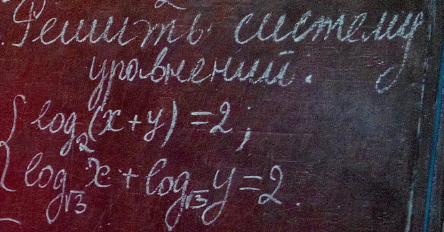 Решить систему
уравнений.
{ log₂(x+y) = 2;
{ log√3 x + log√3 y = 2.